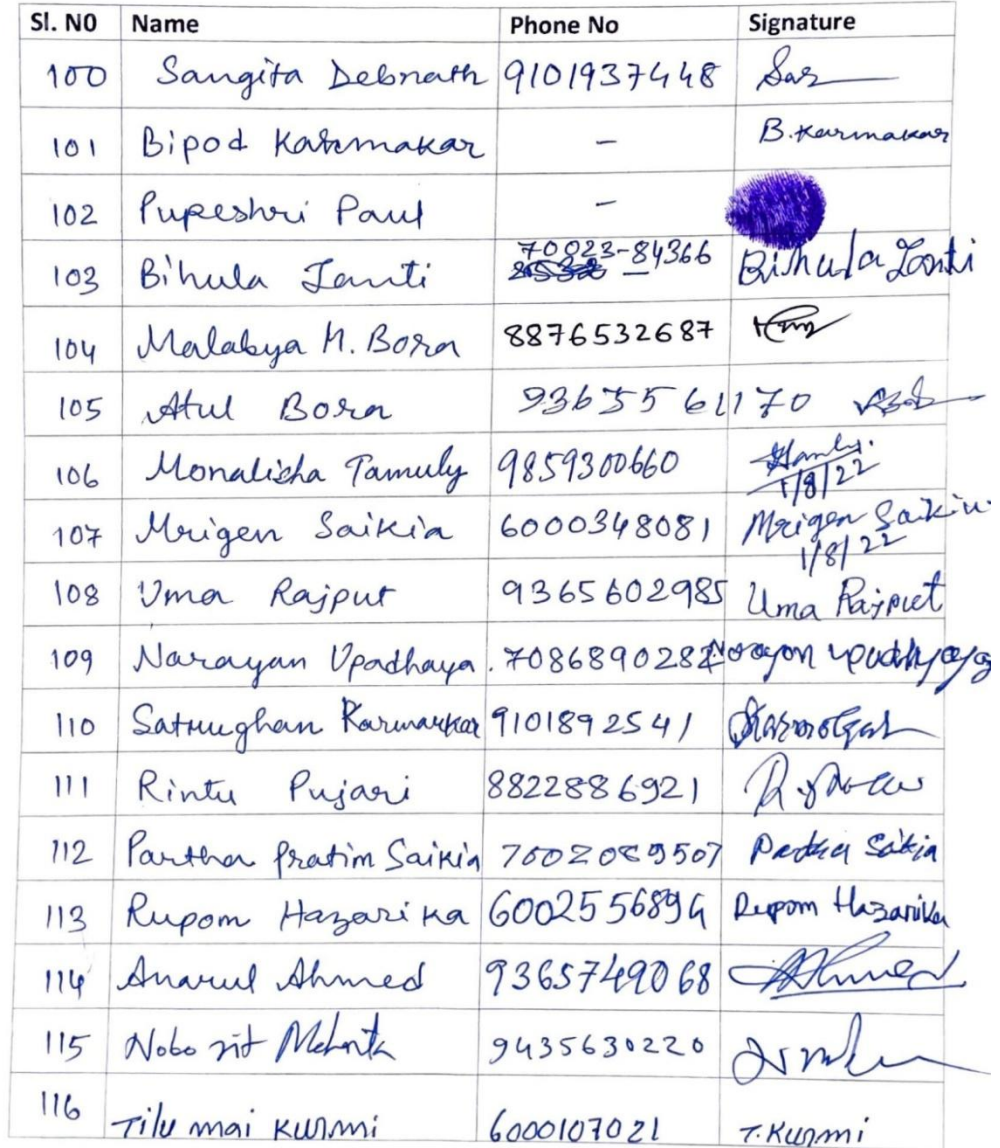 Sl. N0 Name Phone No Signature
100 Sangita Debnath 9101937448
101 Bipod Karmakar - B. Karmakar
102 Pupeshri Paul -
103 Bihula Tanti 70023-84366 Bihula Tanti
104 Malabya M. Bora 8876532687
105 Atul Bora
106 Monalisha Tamuly 9859300660 1/8/22
107 Mrigen Saikia 6000348081 Mrigen Saikia 1/8/22
108 Uma Rajput 9365602985 Uma Rajput
109 Narayan Upadhaya. 7086890282
110 Satrughan Karmarkar 9101892541
111 Rintu Pujari 8822886921
112 Partha Pratim Saikia 7002089507
113 Rupom Hazarika 6002556894 Rupom Hazarika
114 Anarul Ahmed 9365749068 Ahmed
115 Nobo 9435630220
116 Tilu mai Kurmi 6000107021 T. Kurmi